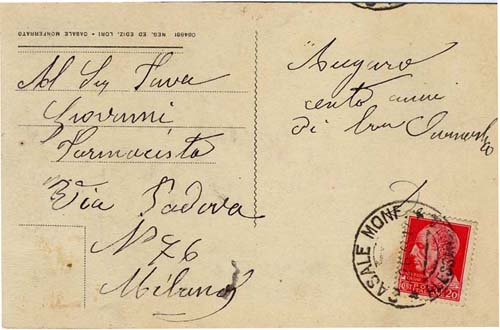 084801 NEG. ED. EDIZ. LORI - CASALE MONFERRATO
Al Sig Fava
Giovanni
Farmacista
Via Padova
N° 76
Milano
Auguro
cento anni
di
CASALE MONF
20